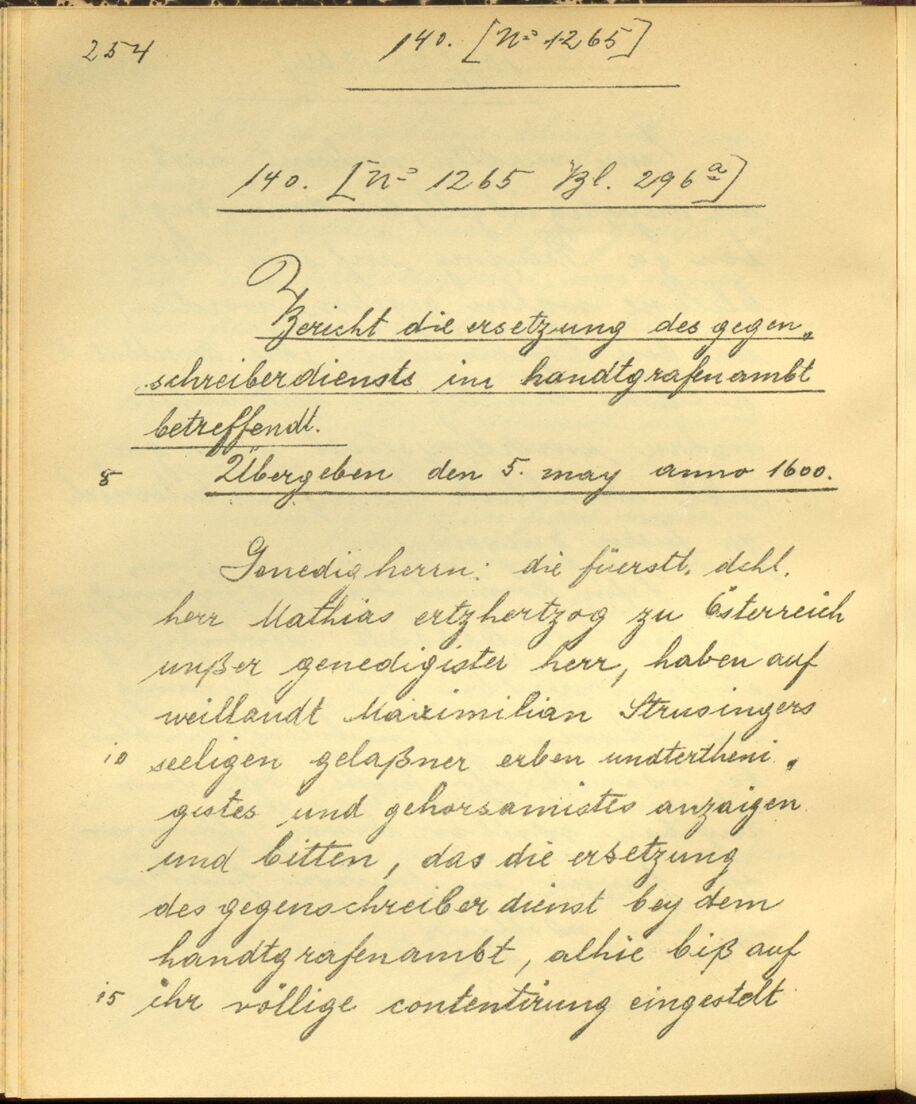 254 140. [No 1265]
140. [No 1265 Bl. 296a]
Bericht die ersetzung des gegen„
schreiberdiensts im handtgrafenambt
betreffendt.
5 Übergeben den 5. may anno 1600.
Genedig herrn: die füerstl. dchl.
herr Mathias ertzhertzog zu Österreich
unßer genedigister herr, haben auf
weillandt Maximilian Strusingers
10 seeligen gelaßner erben undtertheni„
gistes und gehorsamistes anzaigen
und bitten, das die ersetzung
des gegenschreiber dienst bey dem
handtgrafenambt, alhie biß auf
15 ihr völlige contentirung eingestelt